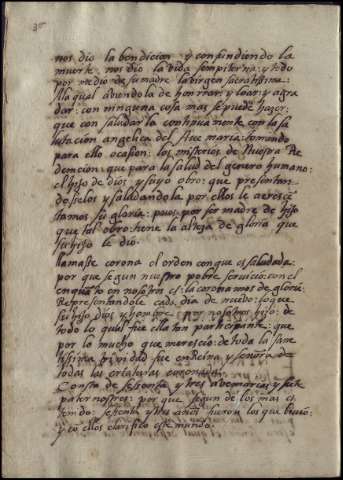 nos dio la bendicion y confundiendo la
muerte nos dio la vida sempiterna: y todo
por medio de su madre la virgen sacratissima:
Ala qual aviendola de honrrar: y loar: y agra
dar: con ninguna cosa mas se puede hazer:
que con saludarla continuamente con la sa
lutacion angelica del Ave maria: tomando
para ello ocasion: los misterios de Nuestra Re
dencion: que para la salud del genero humano:
el hijo de dios y suyo obro: que presentan
doselos y saludandola por ellos le acresce
tamos su gloria: pues por ser madre de hijo
que tal obro: tiene la alteza de gloria que
su hijo le dio.
llamase corona el orden con que es saludada:
por que segun nuestro pobre servicio: con el
en quanto en nosotros es: la coronamos de gloria:
Representandole cada dia de nuevo: lo que
su hijo dios y hombre: por nosotros hizo: de
todo lo qual fue ella tan participante: que
por lo mucho que merescio: de toda la sanc
tissima trinidad fue en Reina y señora de
todas las criaturas
Consta de setenta y tres avemarias y siete
pater nostres: por que segun de los mas es
tenido: setenta y tres años fueron los que bivio:
y co ellos clarifico este mundo.